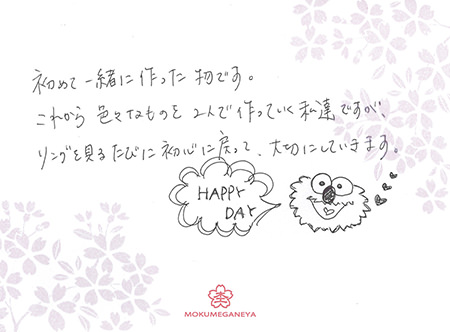 初めて一緒に作った物です。
これから色々なものを2人で作っていく私達ですが、
リングを見るたびに初心に戻って、大切にしていきます。
HAPPY
DAY
MOKUMEGANEYA